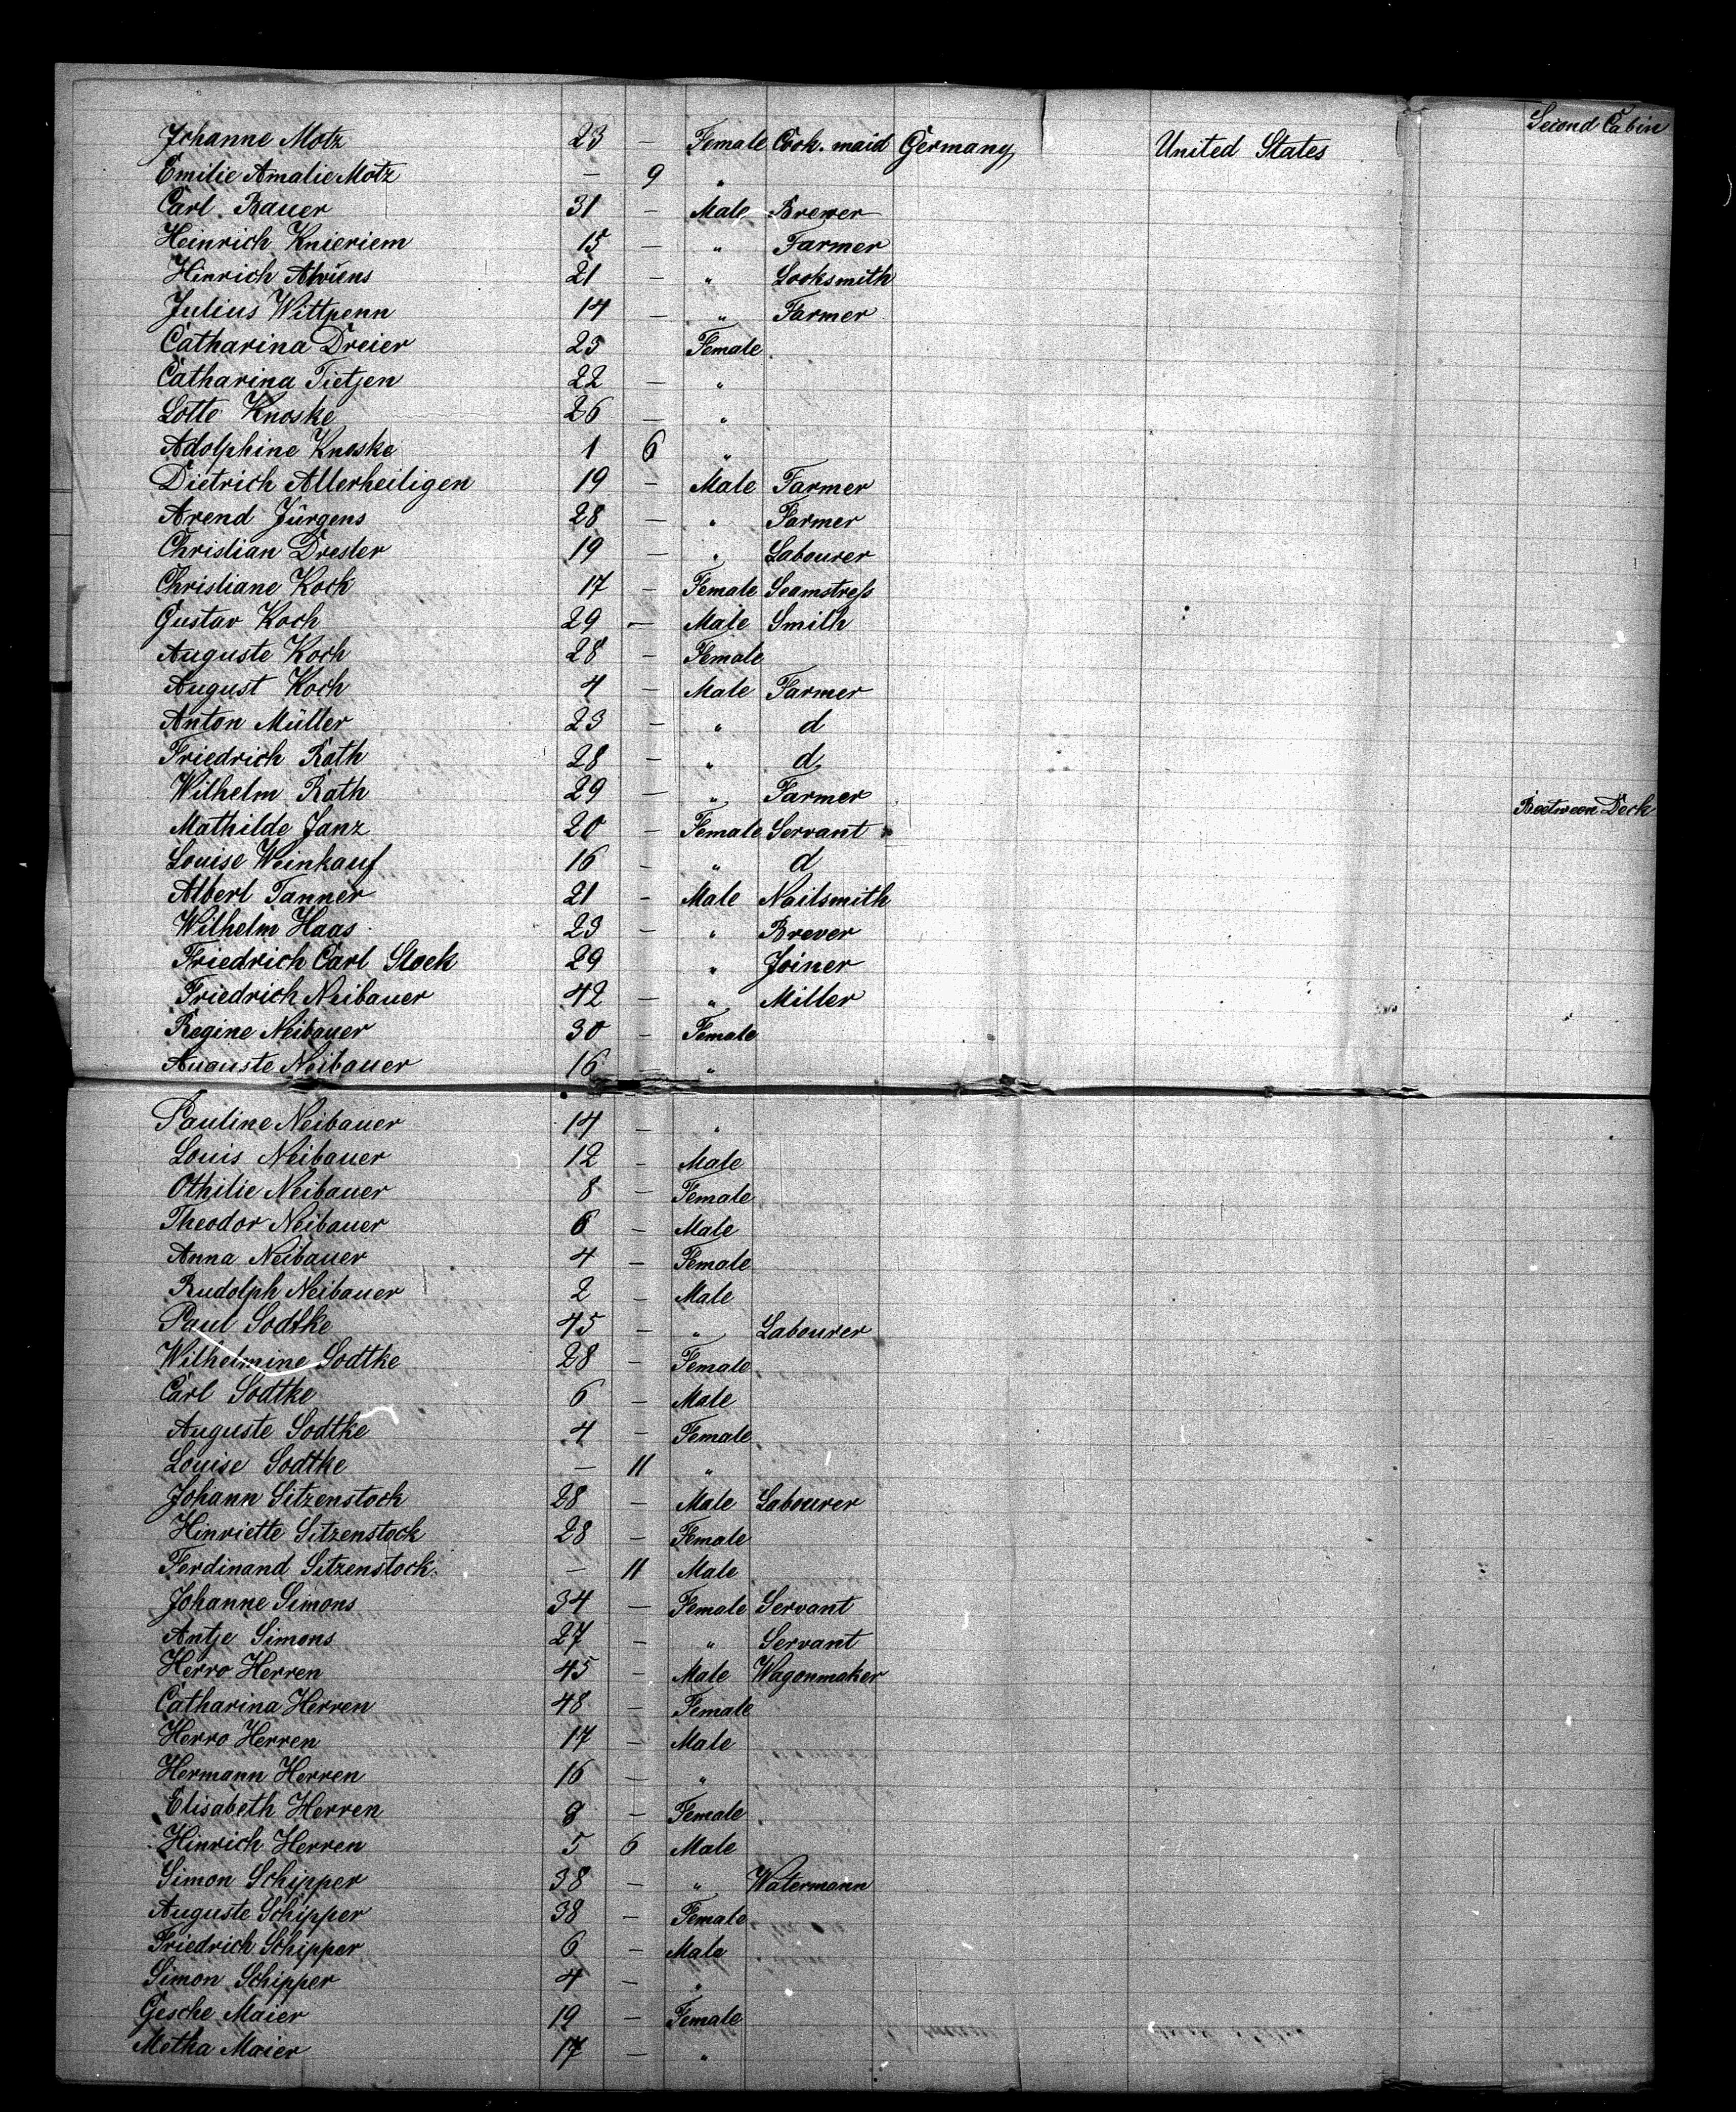 Second Cabin
Johanne Motz 23 — Female Cook. maid Germany United States
Emilie Amalie Motz — 9 "
Carl Bauer 31 — Male Brewer
Heinrich Knieriem 15 — " Farmer
Hinrich 21 — " Locksmith
Julius Wittpenn 14 — " Farmer
Catharina Dreier 23 Female
Catharina Tietjen 22 — "
Lotte Knoske 26 — "
Adolphine Knoske 1 6 "
Dietrich Allerheiligen 19 — Male Farmer
Arend Jürgens 28 — " Farmer
Christian Drester 19 — " Labourer
Christiane Koch 17 — Female Seamstress
Gustav Koch 29 — Male Smith
Auguste Koch 28 — Female
August Koch 4 — Male Farmer
Anton Müller 23 — " d
Friedrich Rath 28 — " d
Wilhelm Rath 29 — " Farmer Beetween Deck
Mathilde Janz 20 — Female Servant
Louise Weinkauf 16 — " d
Albert Tanner 21 — Male Nailsmith
Wilhelm Haas 23 — " Brever
Friedrich Carl Stock 29 " Joiner
Friedrich Neibauer 42 — " Miller
Regine Neibauer 30 — Female
Auguste Neibauer 16 "
Pauline Neibauer 14 — "
Louis Neibauer 12 — Male
Othilie Neibauer 8 — Female
Theodor Neibauer 6 — Male
Anna Neibauer 4 — Female
Rudolph Neibauer 2 — Male
Paul Sodtke 45 — " Labourer
Wilhelmine Sodtke 28 — Female
Carl Sodtke 6 — Male
Auguste Sodtke 4 — Female
Louise Sodtke — 11 "
Johann Sitzenstock 28 — Male Labourer
Hinriette Sitzenstock 28 — Female
Ferdinand Sitzenstock — 11 Male
Johanne Simons 34 — Female Servant
Antje Simons 27 — " Servant
Herro Herren 45 — Male Wagonmaker
Catharina Herren 48 — Female
Herro Herren 17 — Male
Hermann Herren 16 — "
Elisabeth Herren 8 — Female
Hinrich Herren 5 6 Male
Simon Schipper 38 — " Watermann
Auguste Schipper 38 — Female
Friedrich Schipper 6 — Male
Simon Schipper 4 — "
Gesche Maier 19 — Female
Metha Maier 17 — "